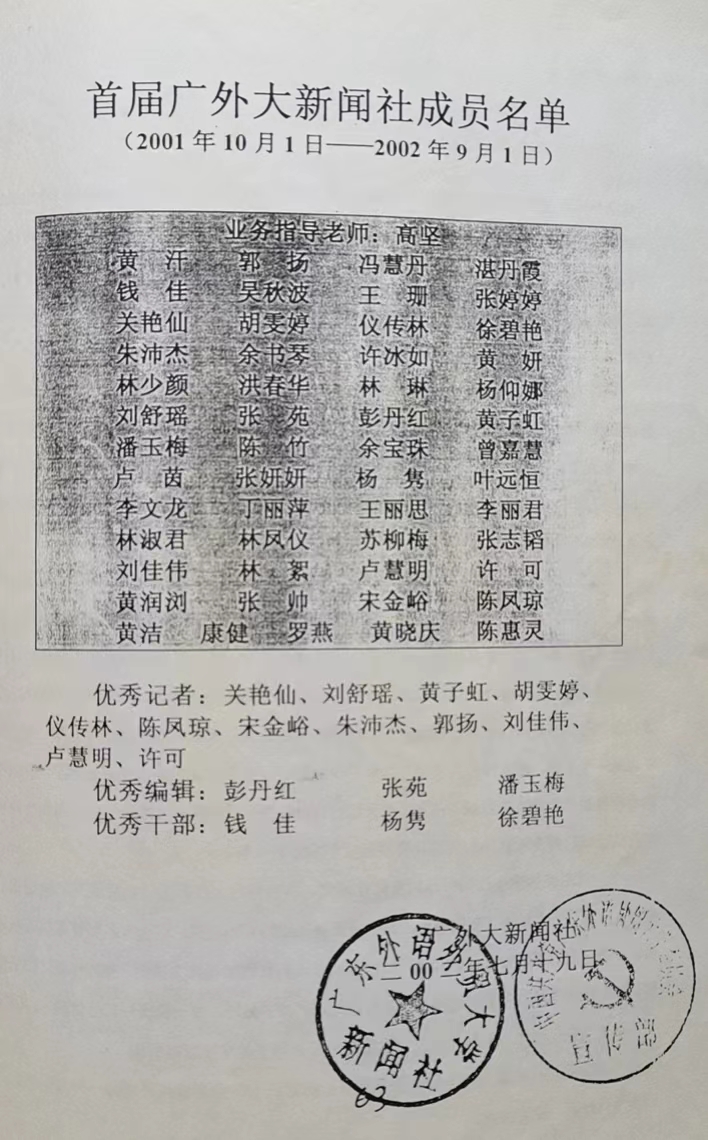 首届广外大新闻社成员名单
（2001年10月1日——2002年9月1日）
业务指导老师：高坚
黄 汗 郭 扬 冯慧丹 湛丹霞
钱 佳 吴秋波 王 珊 张婷婷
关艳仙 胡雯婷 仪传林 徐碧艳
朱沛杰 余书琴 许冰如 黄 妍
林少颜 洪春华 林 琳 杨仰娜
刘舒瑶 张 苑 彭丹红 黄子虹
潘玉梅 陈 竹 余宝珠 曾嘉慧
卢 茵 张妍妍 杨 隽 叶远恒
李文龙 丁丽萍 王丽思 李丽君
林淑君 林凤仪 苏柳梅 张志韬
刘佳伟 林 絮 卢慧明 许 可
黄润浏 张 帅 宋金峪 陈凤琼
黄洁 康健 罗燕 黄晓庆 陈惠灵
优秀记者：关艳仙、刘舒瑶、黄子虹、胡雯婷、
仪传林、陈凤琼、宋金峪、朱沛杰、郭扬、刘佳伟、
卢慧明、许可
优秀编辑：彭丹红 张苑 潘玉梅
优秀干部：钱 佳 杨隽 徐碧艳
广外大新闻社
二00二年七月十九日
广东外语外贸大学
新闻社
宣传部
63